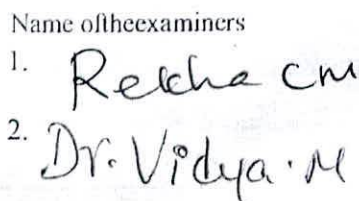 Name oftheexaminers
1. Rekha CM
2. Dr. Vidya. M